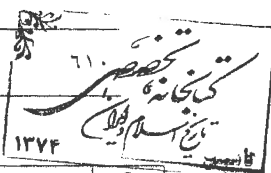 ۶۱۰
کتابخانه تخصصی
تاریخ اسلام و ایران
۱۳۷۴